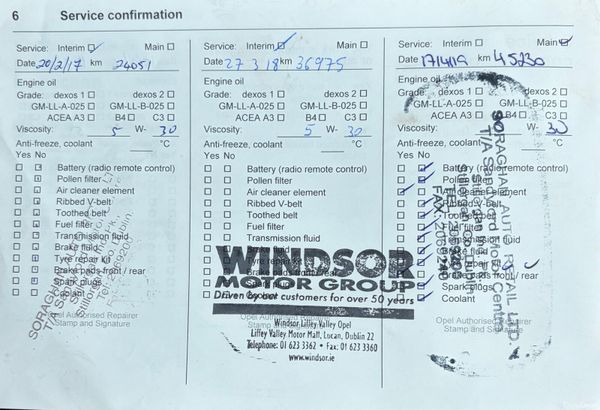 6 Service confirmation
Service: Interim ☑ Main ☐
Date 20/2/17 km 24051
Engine oil
Grade: dexos 1 ☐ dexos 2 ☐
GM-LL-A-025 ☐ GM-LL-B-025 ☐
ACEA A3 ☐ B4 ☐ C3 ☐
Viscosity: 5 W- 30
Anti-freeze, coolant °C
Yes No
Battery (radio remote control)
Pollen filter
Air cleaner element
Ribbed V-belt
Toothed belt
Fuel filter
Transmission fluid
Brake fluid
Tyre repair kit
Brake pads front / rear
Spark plugs
Coolant
Opel Authorised Repairer
Stamp and Signature
Service: Interim ☑ Main ☐
Date 27 3 18 km 36975
Engine oil
Grade: dexos 1 ☐ dexos 2 ☐
GM-LL-A-025 ☐ GM-LL-B-025 ☐
ACEA A3 ☐ B4 ☐ C3 ☐
Viscosity: 5 W- 30
Anti-freeze, coolant °C
Yes No
Battery (radio remote control)
Pollen filter
Air cleaner element
Ribbed V-belt
Toothed belt
Fuel filter
Transmission fluid
Coolant
WINDSOR
MOTOR GROUP
Driven by our customers for over 50 years
Windsor Liffey Valley Opel
Liffey Valley Motor Mall, Lucan, Dublin 22
Telephone: 01 623 3362 • Fax: 01 623 3360
www.windsor.ie
Service: Interim ☐ Main ☑
Date 17/4/19 km 45230
Engine oil
Grade: dexos 1 ☐ dexos 2 ☐
GM-LL-A-025 ☐ GM-LL-B-025 ☐
ACEA A3 ☐ B4 ☐ C3 ☐
Viscosity: W- 30
Anti-freeze, coolant °C
Yes No
Battery (radio remote control)
Pollen filter
Air cleaner element
Ribbed V-belt
Toothed belt
Fuel filter
Transmission fluid
Brake fluid
Tyre repair kit
Brake pads front / rear
Spark plugs
Coolant
Opel Authorised Repairer
Stamp and Signature
SORAGHAN AUTO REPAIR LTD.